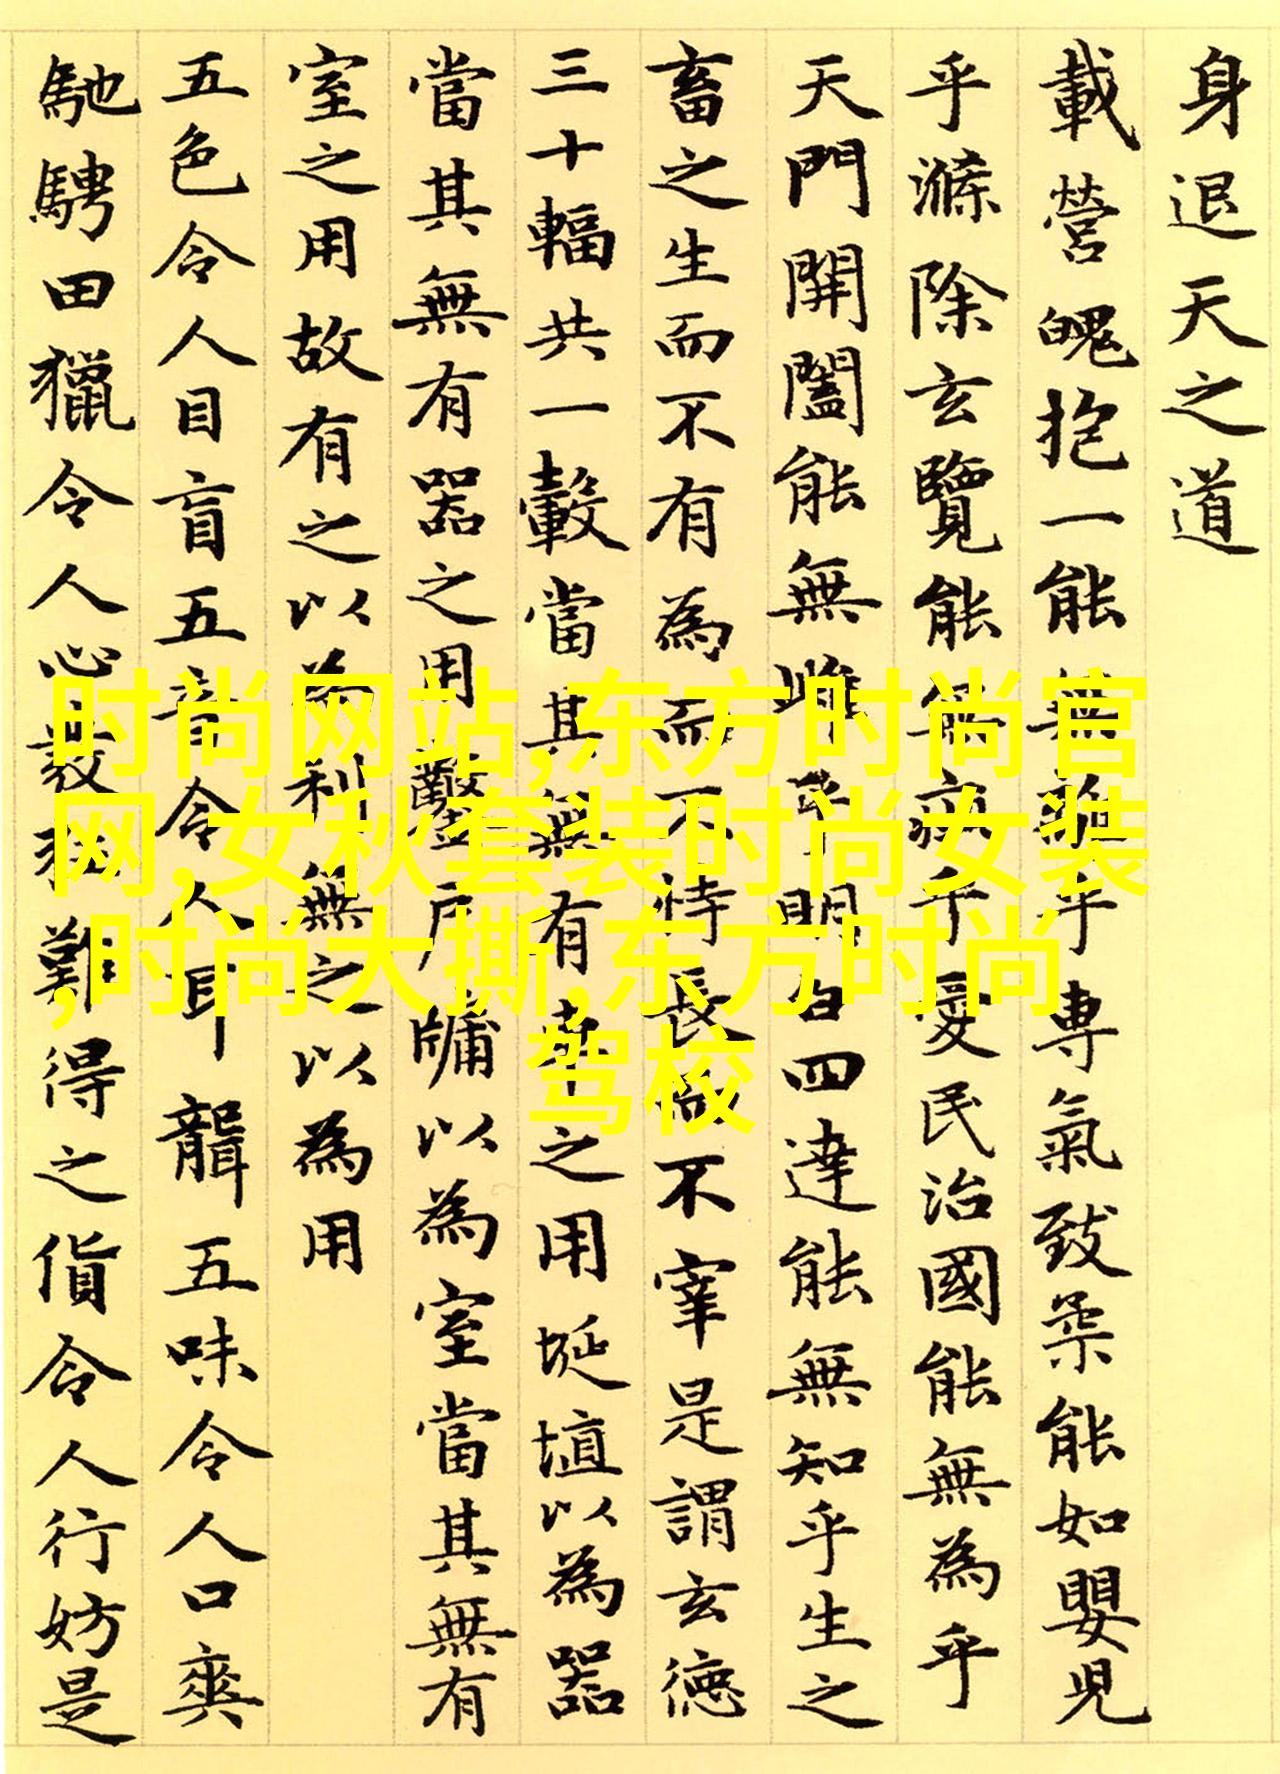 身退天之道
載營魄抱一能無離乎專氣致柔能如嬰兒
乎滌除玄覽能無疵乎愛民治國能無為乎
天門開闔能無雌乎明白四達能無知乎生之
畜之生而不有為而不恃長而不宰是謂玄德
三十輻共一轂當其無有車之用埏埴以為器
當其無有器之用鑿戶牖以為室當其無有
室之用故有之以為利無之以為用
五色令人目盲五音令人耳聾五味令人口爽
馳騁田獵令人心發狂難得之貨令人行妨是
时尚网站,东方时尚官
网,女秋套装时尚女装
,时尚大撕,东方时尚
驾校